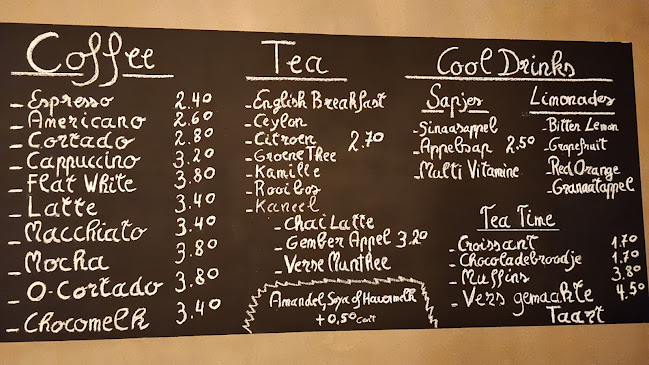 Coffee
Espresso 2.40
Americano 2.60
Cortado 2.80
Cappuccino 3.20
Flat White 3.80
Latte 3.40
Macchiato 3.40
Mocha 3.80
O-Cortado 3.80
Chocomelk 3.40
Tea
English Breakfast
Ceylon
Citroen 2.70
Groene Thee
Kamille
Rooibos
Kaneel
Chai Latte
Gember Appel 3.20
Verse Munthee
Amandel, Soya of Havermelk
+0,50 Cent
Cool Drinks
Sapjes
Sinaasappel
Appelsap 2.50
Multi Vitamine
Limonades
Bitter Lemon
Grapefruit
Red Orange
Granaatappel
Tea Time
Croissant 1.70
Chocoladebroodje 1.70
Muffins 3.80
Vers gemaakte 4.50
Taart